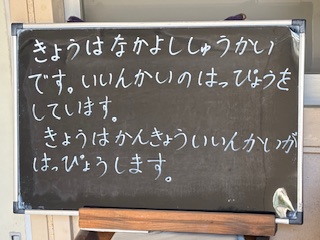 きょうはなかよししゅうかい
です。いいんかいのはっぴょうを
しています。
きょうはかんきょういいんかいが
はっぴょうします。